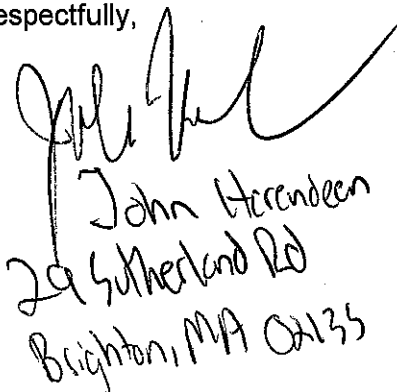 espectfully,
John Herendeen
29 Sutherland Rd
Brighton, MA 02135